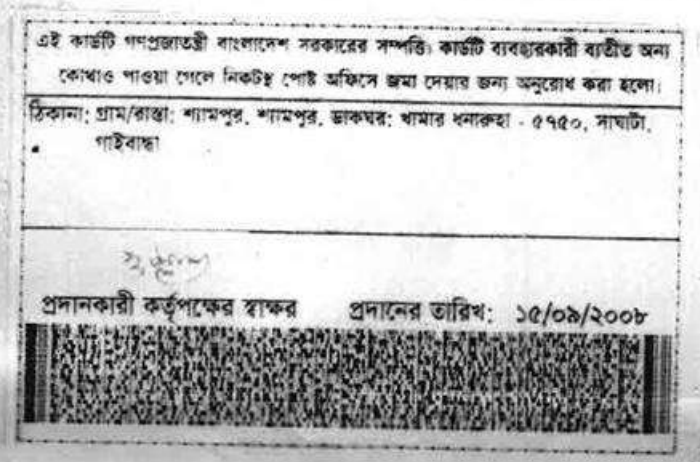 এই কার্ডটি গণপ্রজাতন্ত্রী বাংলাদেশ সরকারের সম্পত্তি। কার্ডটি ব্যবহারকারী ব্যতীত অন্য
কোথাও পাওয়া গেলে নিকটস্থ পোষ্ট অফিসে জমা দেয়ার জন্য অনুরোধ করা হলো।
ঠিকানা: গ্রাম/রাস্তা: শ্যামপুর, শ্যামপুর, ডাকঘর: খামার ধনারুহা - ৫৭৫০, সাঘাটা,
গাইবান্ধা
প্রদানকারী কর্তৃপক্ষের স্বাক্ষর প্রদানের তারিখ: ১৫/০৯/২০০৮